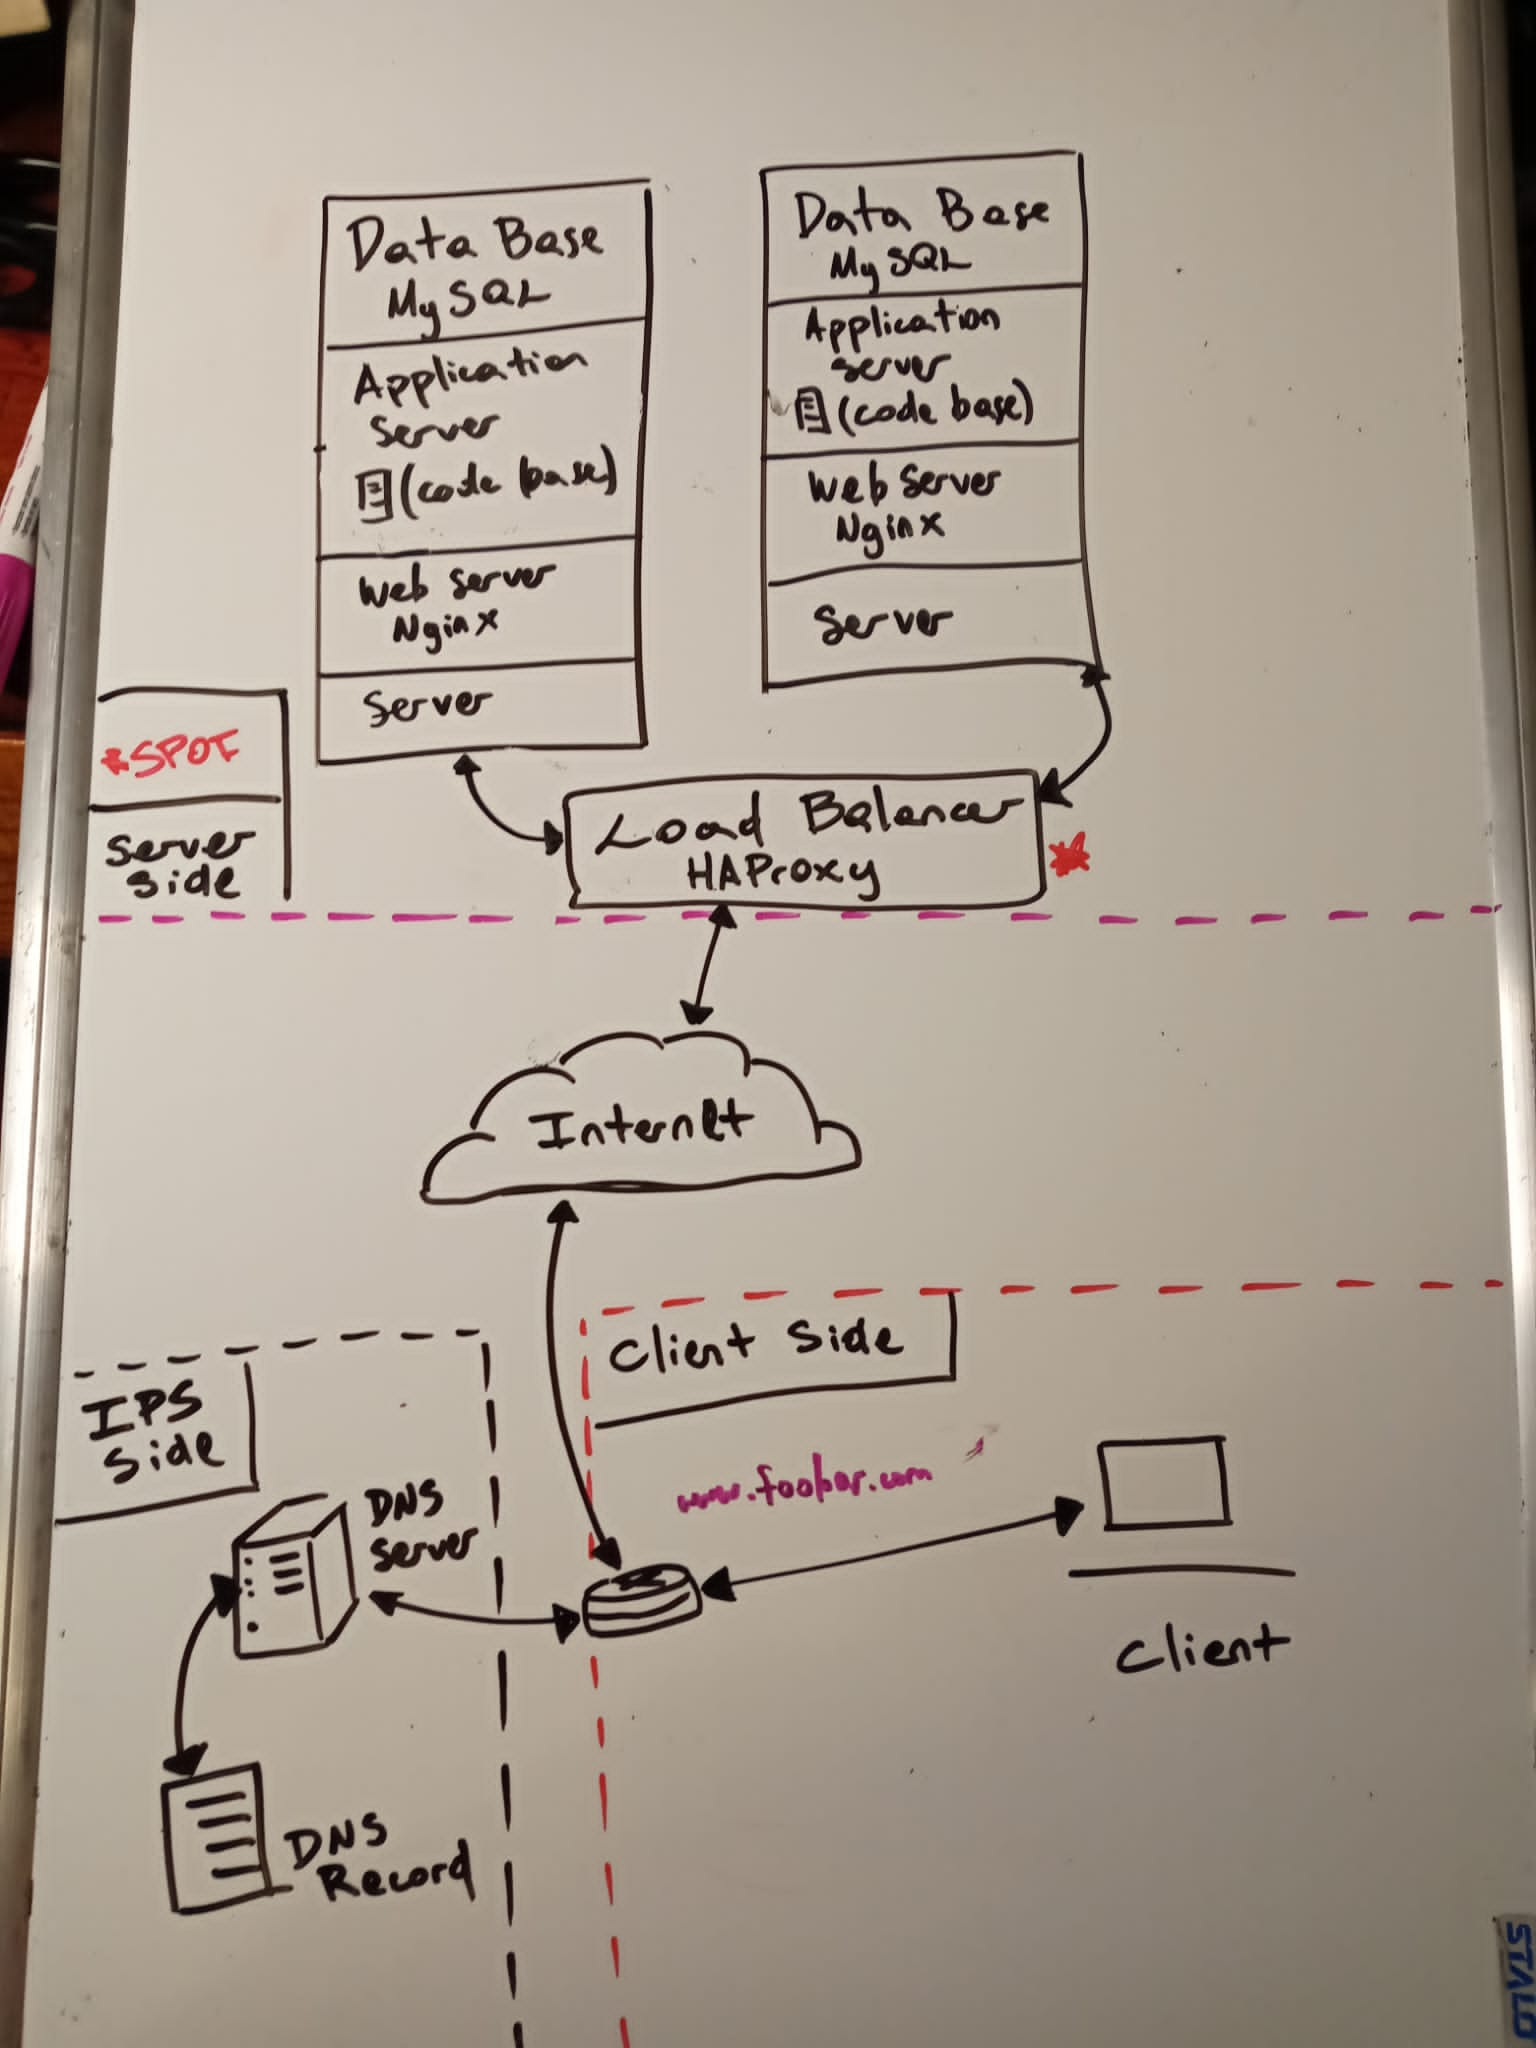 Data Base
MySQL
Application
Server
(code base)
Web Server
Nginx
Server
Data Base
MySQL
Application
Server
(code base)
Web Server
Nginx
Server
*SPOF
Server
Side
Load Balancer
HAProxy
Internet
Client Side
IPS
Side
www.foobar.com
DNS
Server
Client
DNS
Record
STALO